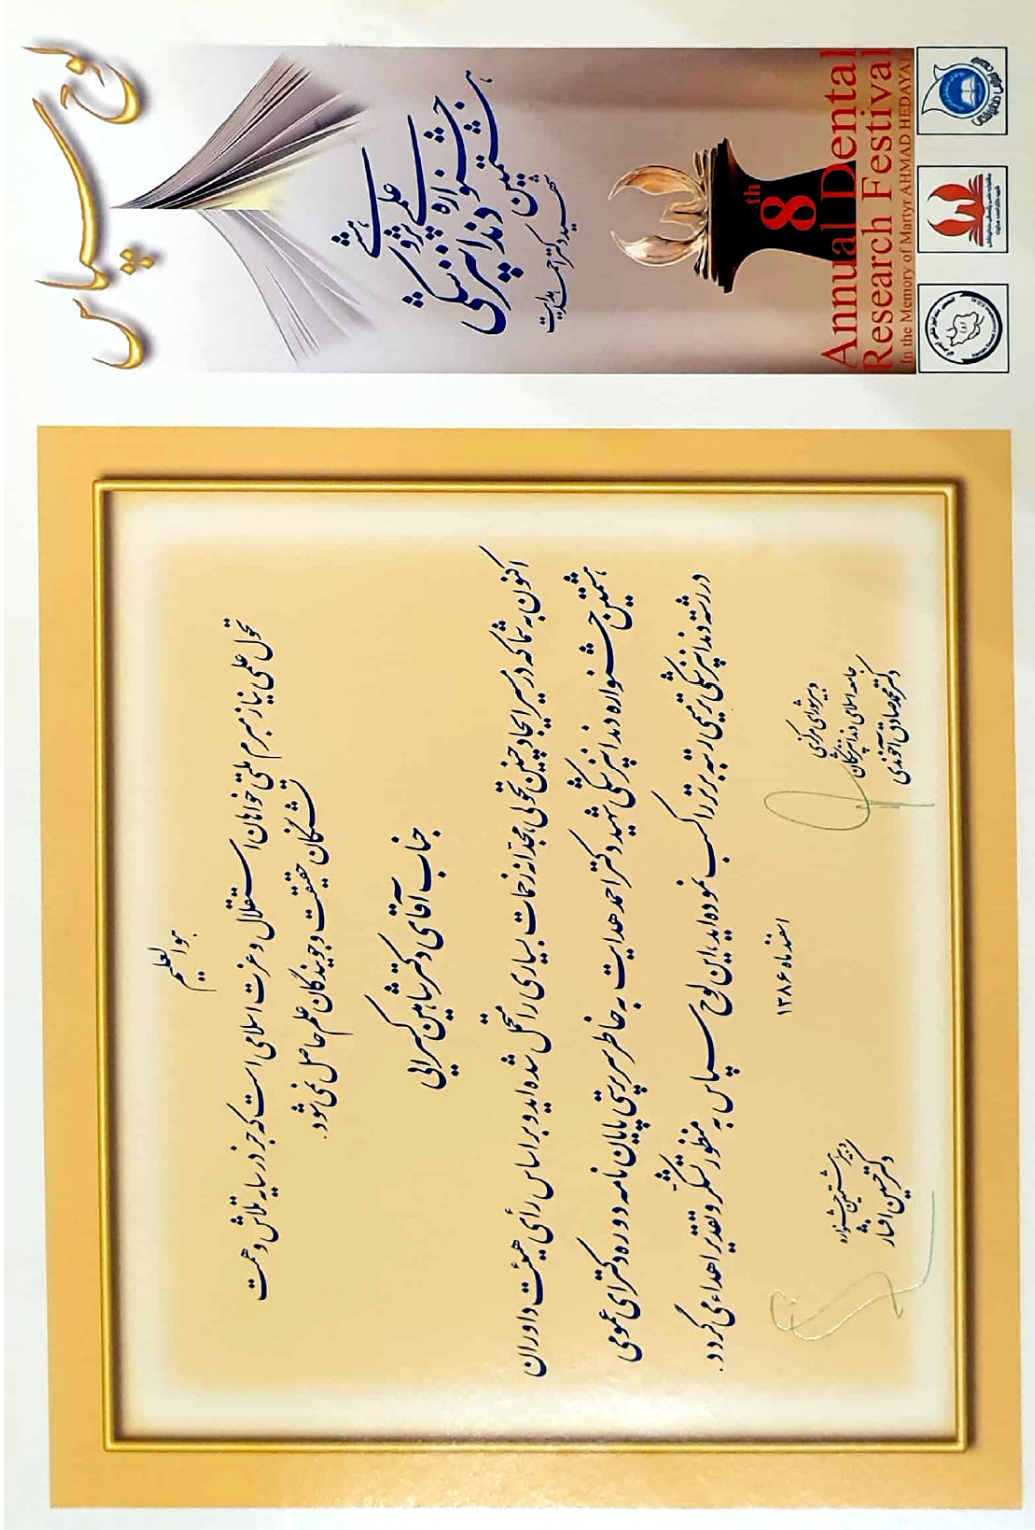 لوح سپاس
هشتمین
جشنواره علمی پژوهشی
دندانپزشکی
شهید دکتر احمد هدایت
8th
Annual Dental
Research Festival
In the Memory of Martyr AHMAD HEDAYAT
هوالعلیم
تحول علمی نیاز مبرم ملتی خواهان استقلال و عزت اسلامی است که جز در سایه تلاش و همت
تشنگان حقیقت و جویندگان علم حاصل نمی شود.
جناب آقای دکتر شاهین کسرایی
اکنون به شما که در مسیر ایجاد چنین تحولی، مجدّانه زحمات بسیاری را متحمل شده اید و بر اساس رأی هیئت داوران
هشتمین جشنواره دندانپزشکی شهید دکتر احمد هدایت به خاطر سرپرستی پایان نامه دوره دکترای عمومی
در رشته دندانپزشکی ترمیمی رتبه برتر را کسب نموده اید، این لوح سپاس به منظور تشکّر و تقدیر اهداء می گردد.
اسفند ماه ۱۳۸۶
دبیر شورای مرکزی
جامعه اسلامی دندانپزشکان
دکتر محمد صادق آخوندی
دبیر هشتمین جشنواره
دکتر حسین افشار